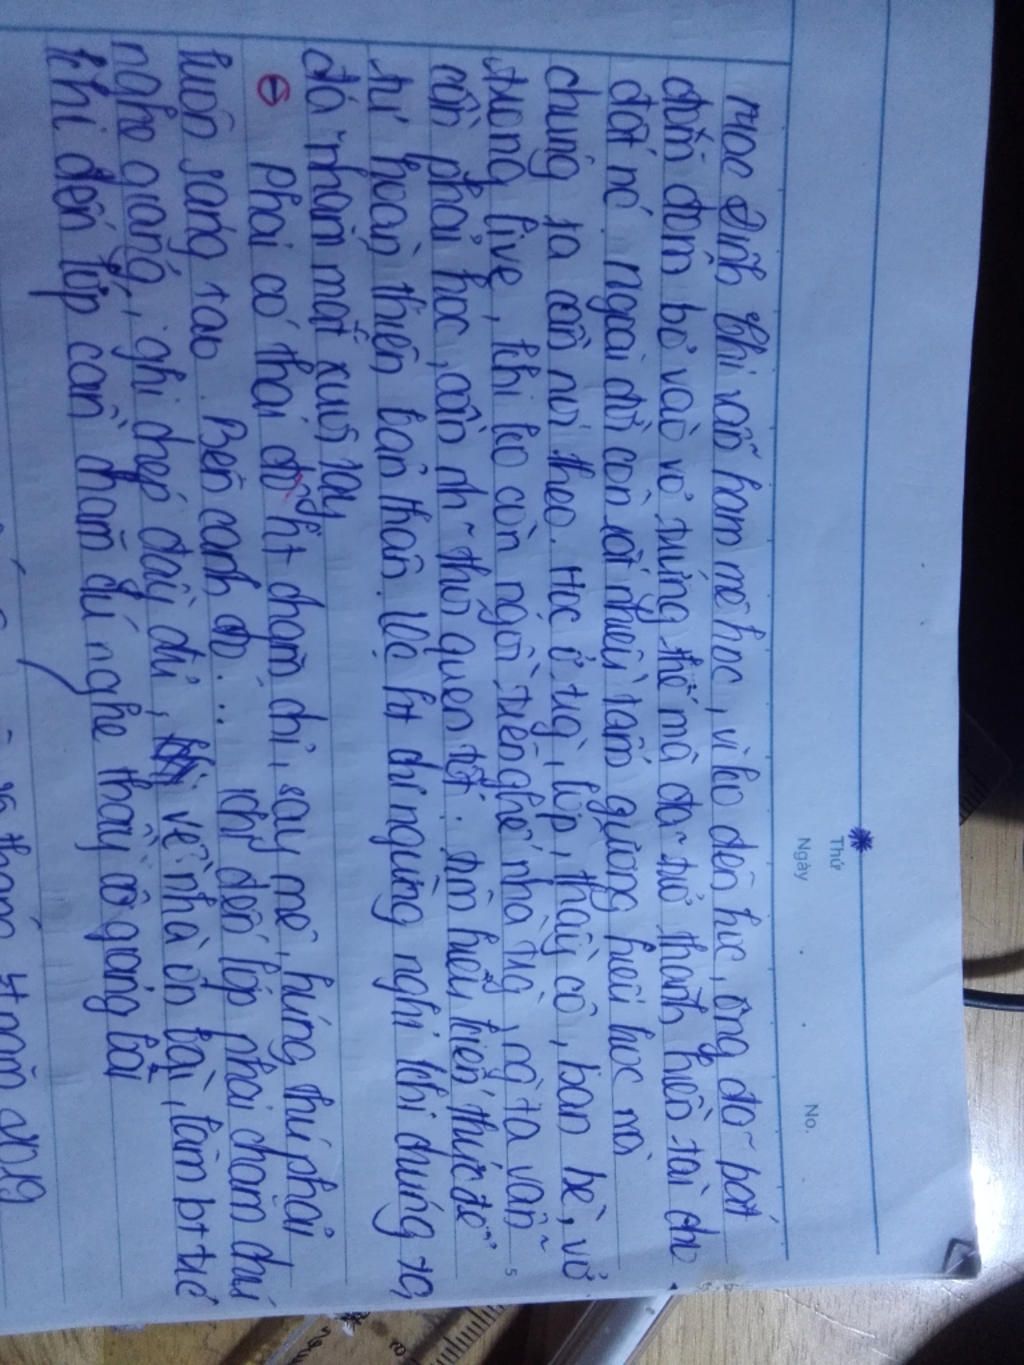 Thứ
Ngày
No.
mac Đĩnh Khi vẫn ham mê học, vì ko đến học, ông đã bắt
đốm đom bỏ vào vỏ trứng thế mà đã trở thành hiền tài cho
đất nc. ngoài đời còn rất nhiều tấm gương hiếu học mà
chúng ta cần noi theo. Học ở trg, lớp, thầy cô, bạn bè, vở
trong live, khi ko còn ngồi trên ghế nhà trg, ng ta vẫn
cần phải học, cần nh~ thói quen tốt: tìm hiểu kiến thức để
tự hoàn thiện bản thân. Việc ht chỉ ngừng nghỉ khi chúng ta
đã nhắm mắt xuôi tay
phải có thái độ ht chăm chỉ, say mê, hứng thú phải
luôn sáng tạo. Bên cạnh đó.. khi đến lớp phải chăm chú
nghe giảng, ghi chép đầy đủ, về nhà ôn bài, làm bt trc
khi đến lớp cần chăm chú nghe thầy cô giảng bài
tháng năm 2019